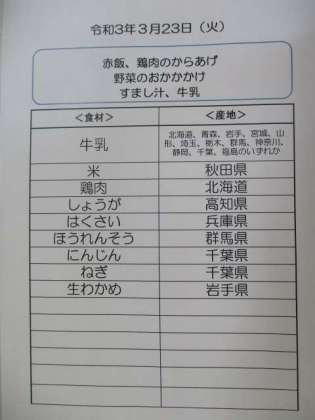 令和3年3月23日（火）
赤飯、鶏肉のからあげ
野菜のおかかかけ
すまし汁、牛乳
＜食材＞ ＜産地＞
牛乳 北海道、青森、岩手、宮城、山
形、埼玉、栃木、群馬、神奈川、
静岡、千葉、福島のいずれか
米 秋田県
鶏肉 北海道
しょうが 高知県
はくさい 兵庫県
ほうれんそう 群馬県
にんじん 千葉県
ねぎ 千葉県
生わかめ 岩手県